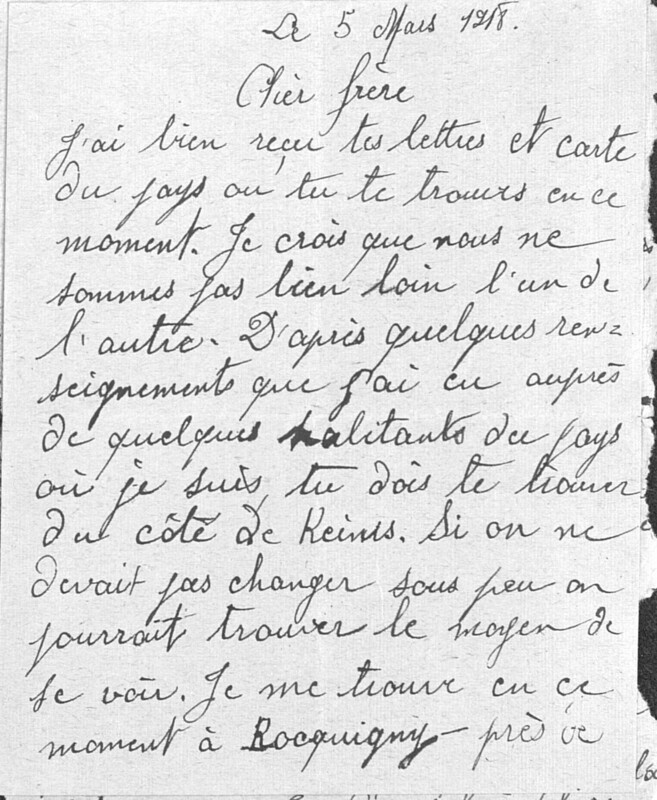 Le 5 Mars 1918.
Chèr frère
J'ai bien reçu tes lettres et carte
du pays où tu te trouves en ce
moment. Je crois que nous ne
sommes pas bien loin l'un de
l'autre. D'après quelques ren=
seignements que j'ai eu auprès
de quelques habitants du pays
où je suis, tu dois te trouver
du côté de Reims. Si on ne
devait pas changer sous peu on
pourrait trouver le moyen de
se voir. Je me trouve en ce
moment à Rocquigny - près de